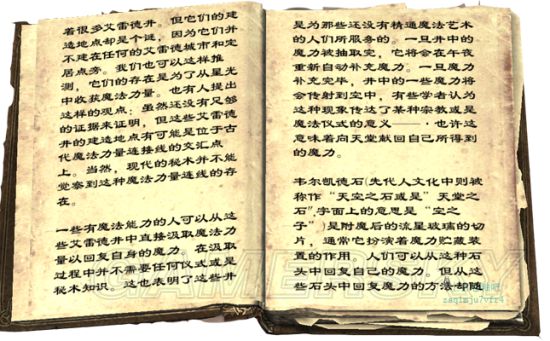 着很多艾雷德井。但它们的建
造地点却是个谜，因为它们并
不建在任何的艾雷德城市和定
居点旁。我们也可以这样推
测，它们的存在是为了从星光
中收获魔法力量。也有人提出
这样的观点：虽然还没有足够
的证据来证明，但这些艾雷德
井的建造地点有可能是位于古
代魔法力量连接线的交汇点
上。当然，现代的秘术并不能
觉察到这种魔法力量连线的存
在。
一些有魔法能力的人可以从这
些艾雷德井中直接汲取魔法力
量以回复自身的魔力。在汲取
过程中并不需要任何仪式或是
秘术知识。这也表明了这些井
是为那些还没有精通魔法艺术
的人们所服务的。一旦井中的
魔力被抽取完，它将会在午夜
重新自动补充魔力。一旦魔力
补充完毕，井中的一些魔力将
会传射到空中，有些学者认为
这种现象传达了某种宗教或是
魔法仪式的意义——·也许这
意味着向天堂献回自己所得到
的魔力。
韦尔凯德石(先代人文化中则被
称作“天空之石或是”天堂之
石”,字面上的意思是“空之
子”)是附魔后的流星玻璃的切
片，通常它扮演着魔力贮藏装
置的作用。人们可以从这种石
头中回复自己的魔力。但从这
些石头中回复魔力的方法却随
GAMERSKY
zaq1mju7vfr4